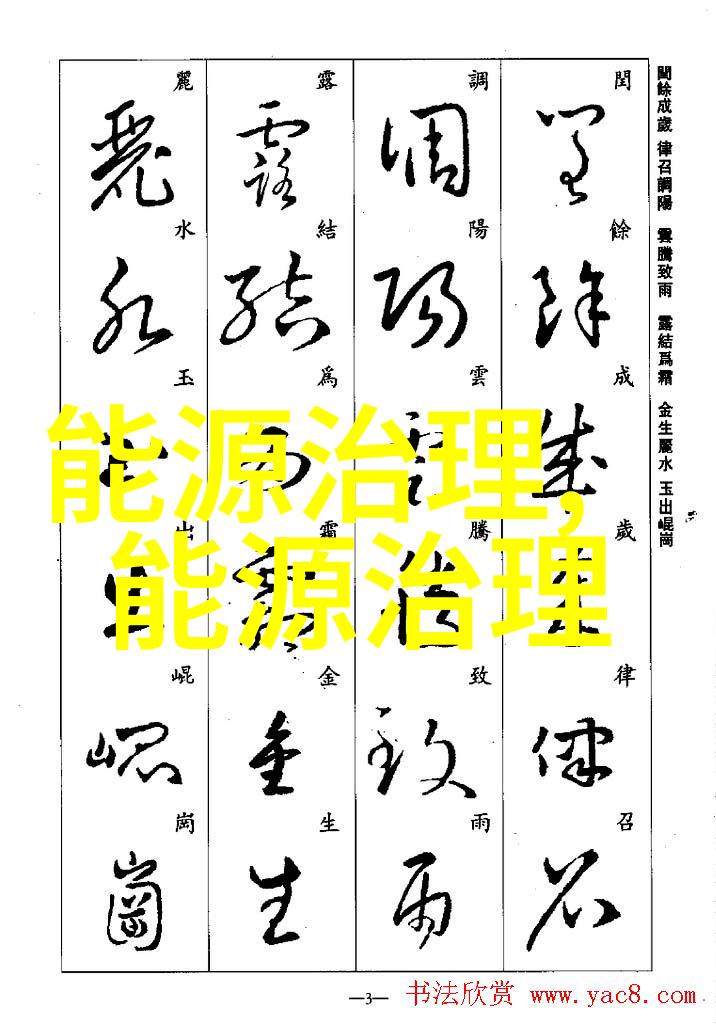 閏餘成歲 律召調陽 雲騰致雨 露結爲霜 金生麗水 玉出崐崗
閏餘成歲律召
調陽雲騰致雨
露結爲霜金生
麗水玉出崐崗
能源治理,
能源治理
—3—
书法欣赏 www.yac8.com